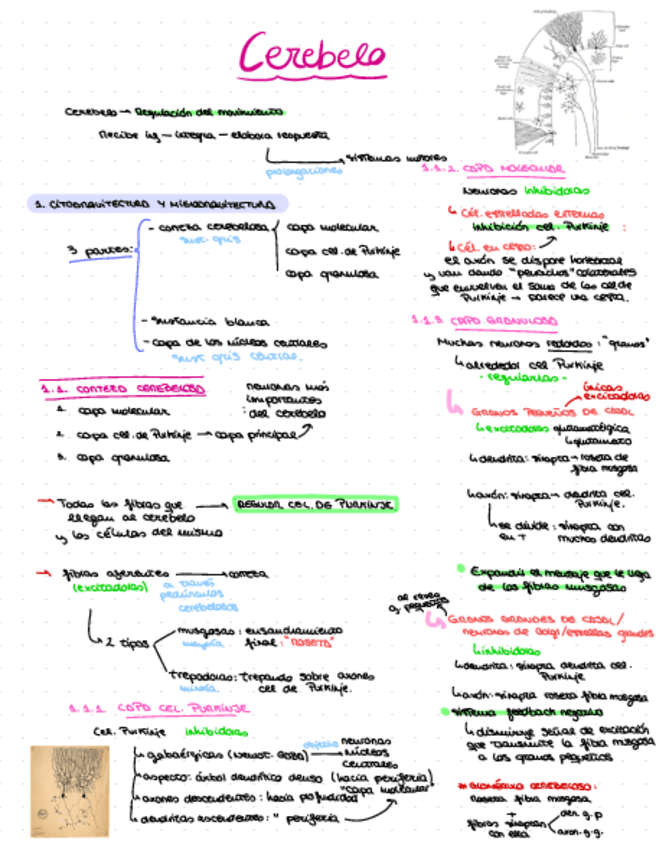 Cerebelo
Cerebelo → Regulación del movimiento
Recibe inf → integra → elabora respuesta
prolongaciones
sistemas motores
1. CITOARQUITECTURA Y MIELOARQUITECTURA
3 partes:
- corteza cerebelosa
sust. gris
capa molecular
capa cel. de Purkinje
capa granulosa
- sustancia blanca
- capa de los núcleos centrales
sust gris central.
1.1. CORTEZA CEREBELOSA
1. capa molecular
2. capa cel. de Purkinje → capa principal
3. capa granulosa
neuronas más
importantes
del cerebelo
→ Todas las fibras que
llegan al cerebelo
y las células del mismo
REGULAR CEL. DE PURKINJE
→ fibras aferentes → corteza
(excitadoras)
a través
pedúnculos
cerebelosos
2 tipos
musgosas: ensanchamiento
mayoría
final: "ROSETA"
trepadoras: trepando sobre axones
minoría.
cel de Purkinje.
1.1.1 CAPA CEL. PURKINJE
Cel. Purkinje inhibidoras
gabaérgicas (Neurot. GABA)
objetivo
neuronas
núcleos
centrales
aspecto: árbol dendrítico denso (hacia periferia)
"capa molecular"
axones descendentes: hacia profundidad
dendritas ascendentes: " periferia
1.1.2. CAPA MOLECULAR
Neuronas inhibidoras
Cél. estrelladas externas
inhibición cel. Purkinje
Cél. en cesto:
el axón se dispone horizontal
y van dando "penachos" colaterales
que envuelven el soma de las cel de
Purkinje → parece una cesta.
1.1.3. CAPA GRANULOSA
Muchas neuronas redondas: "granos"
alrededor cel. Purkinje
- regularlas -
únicas
excitadoras
GRANOS PEQUEÑOS DE CAJAL
excitadoras glutamatérgica
glutamato
dendrita: sinapta → roseta de
fibra musgosa
axón: sinapta → dendrita cel.
Purkinje.
se divide: sinapta con
en T muchas dendritas
Expandir el mensaje que le llega
de las fibras musgosas
al revés
q pequeños
GRANOS GRANDES DE CAJAL/
neuronas de Golgi/estrellas grandes
inhibidoras
dendrita: sinapta dendrita cel.
Purkinje
axón: sinapta roseta fibra musgosa
sistema feedback negativo
disminuye señal de excitación
que transmite la fibra musgosa
a los granos pequeños
GLOMÉRULO CEREBELOSO:
roseta fibra musgosa
+
fibras sinaptan
con ella
den. g. p
axon. g. g.